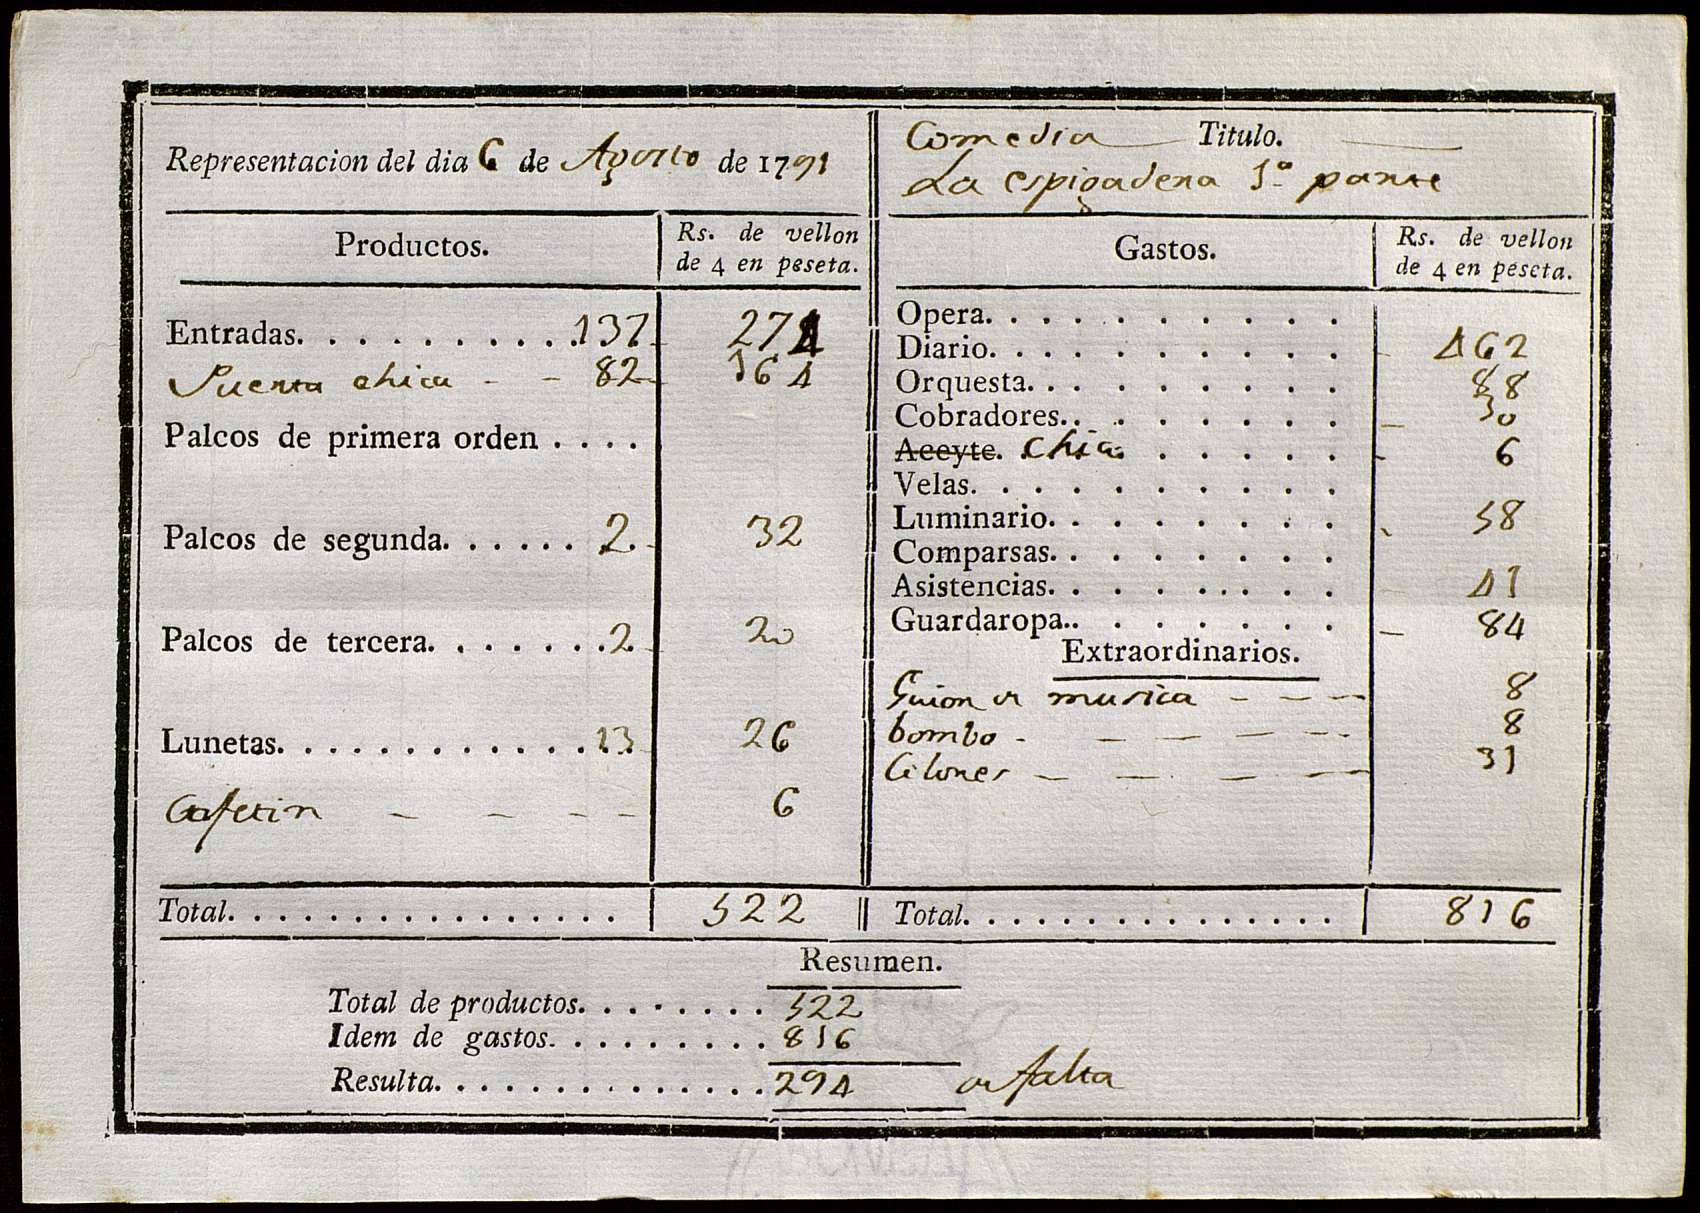 Representacion del dia 6 de Agosto de 1791
Productos.
Rs. de vellon
de 4 en peseta.
Entradas. . . . . . . . . . . 137 274
Puerta chica - - 82 164
Palcos de primera orden . . . .
Palcos de segunda. . . . . . 2 32
Palcos de tercera. . . . . . . 2 20
Lunetas. . . . . . . . . . . . 13 26
Cafetin - - - - 6
Total. . . . . . . . . . . . . . . . 522
Comedia Titulo.
La espigadera 1ª parte
Gastos.
Rs. de vellon
de 4 en peseta.
Opera. . . . . . . . . .
Diario. . . . . . . . . . 462
Orquesta. . . . . . . . . 88
Cobradores. . . . . . . . 30
Aceyte. chica . . . . . 6
Velas. . . . . . . . . .
Luminario. . . . . . . . 58
Comparsas. . . . . . . .
Asistencias. . . . . . . . 41
Guardaropa. . . . . . . . 84
Extraordinarios.
Guion de musica - - - 8
bombo - - - - - 8
Cilones - - - - 31
Total. . . . . . . . . . . . . . . 816
Resumen.
Total de productos. . . . . . . . 522
Idem de gastos. . . . . . . . . 816
Resulta. . . . . . . . . . . . . . 294 de falta